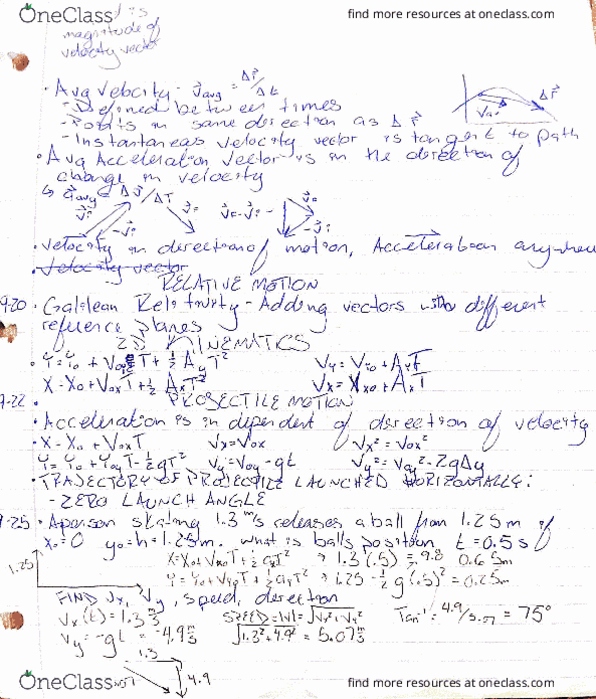 OneClass
find more resources at oneclass.com
is
magnitude of
velocity vector
· Avg Velocity - v avg = Δr/Δt
- Defined between times
- Points in same direction as Δr
- Instantaneas velocity vector is tangent to path
Δr
· Avg Acceleration Vector is in the direction of
change in velocity
↳ a avg = Δv/ΔT
· Velocity in direction of motion, Acceleration anywhere
· Velocity vector
RELATIVE MOTION
9-20 · Galilean Relativity - Adding vectors with different
reference planes
2D KINEMATICS
· Y=Y₀ + V₀yT + ½AyT² Vy = Vy₀ + AyT
X = X₀ + V₀xT + ½AxT² Vx = Vx₀ + AxT
9-22 · PROJECTILE MOTION
· Acceleration is independent of direction of velocity
· X = X₀ + V₀xT Vx = V₀x Vx² = V₀x²
Y = Y₀ + V₀yT - ½gT² Vy = V₀y - gt Vy² = V₀y² - 2gΔy
· TRAJECTORY OF PROJECTILE LAUNCHED HORIZONTALLY:
- ZERO LAUNCH ANGLE
9-25 · A person skating 1.3 m/s releases a ball from 1.25m if
x₀=0 y₀=h=1.25m. What is balls position t=0.5s
1.25
0.65m
= 0.25m
FIND Vx, Vy, speed, direction
Vx(t) = 1.3 m/s SPEED = |V| = √Vx²+Vy² Tan⁻¹ = 4.9/5.07 = 75°
Vy = -gt = -4.9 m/s √1.3²+4.9² = 5.07 m/s
1.3
4.9
OneClass
find more resources at oneclass.com